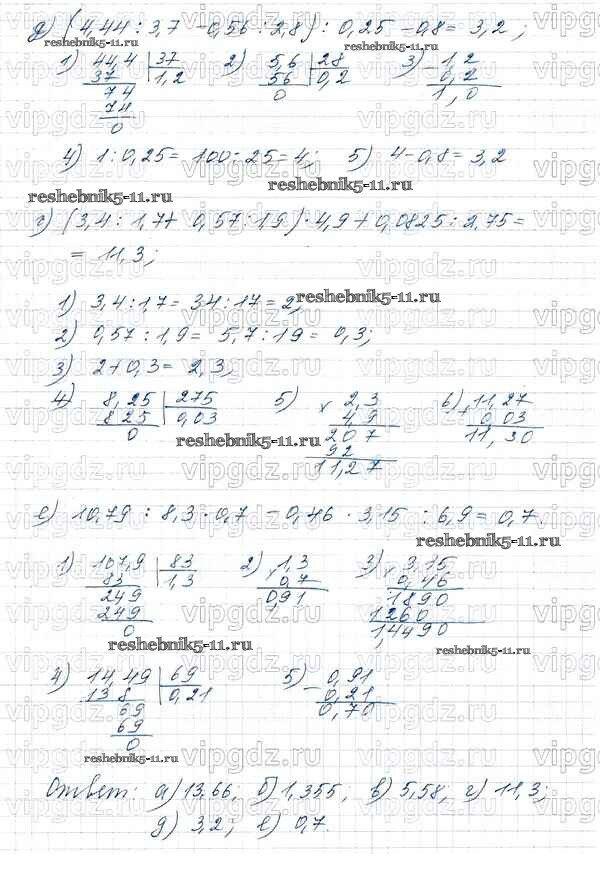 д) (4,44 : 3,7 - 0,56 : 2,8) : 0,25 - 0,8 = 3,2;
1) 44,4 | 37 2) 5,6 | 28 3) - 1,2
37 | 1,2 56 | 0,2 0,2
74 0 1,0
74
0
4) 1 : 0,25 = 100 : 25 = 4; 5) 4 - 0,8 = 3,2
г) (3,4 : 1,7 + 0,57 : 1,9) · 4,9 + 0,0825 : 2,75 =
= 11,3;
1) 3,4 : 1,7 = 34 : 17 = 2;
2) 0,57 : 1,9 = 5,7 : 19 = 0,3;
3) 2 + 0,3 = 2,3;
4) 8,25 | 275 5) × 2,3 6) + 11,27
825 | 0,03 4,9 0,03
0 207 11,30
92
11,27
е) 10,79 : 8,3 · 0,7 - 0,46 · 3,15 : 6,9 = 0,7.
1) 107,9 | 83 2) × 1,3 3) × 3,15
83 | 1,3 0,7 0,46
249 0,91 1890
249 1260
0 1,4490
4) 14,49 | 69 5) - 0,91
138 | 0,21 0,21
69 0,70
69
0
Ответ: а) 13,66; б) 1,355; в) 5,58; г) 11,3;
д) 3,2; е) 0,7.
reshebnik5-11.ru
reshebnik5-11.ru
reshebnik5-11.ru
reshebnik5-11.ru
reshebnik5-11.ru
reshebnik5-11.ru
reshebnik5-11.ru
reshebnik5-11.ru
reshebnik5-11.ru
reshebnik5-11.ru
vipgdz.ru